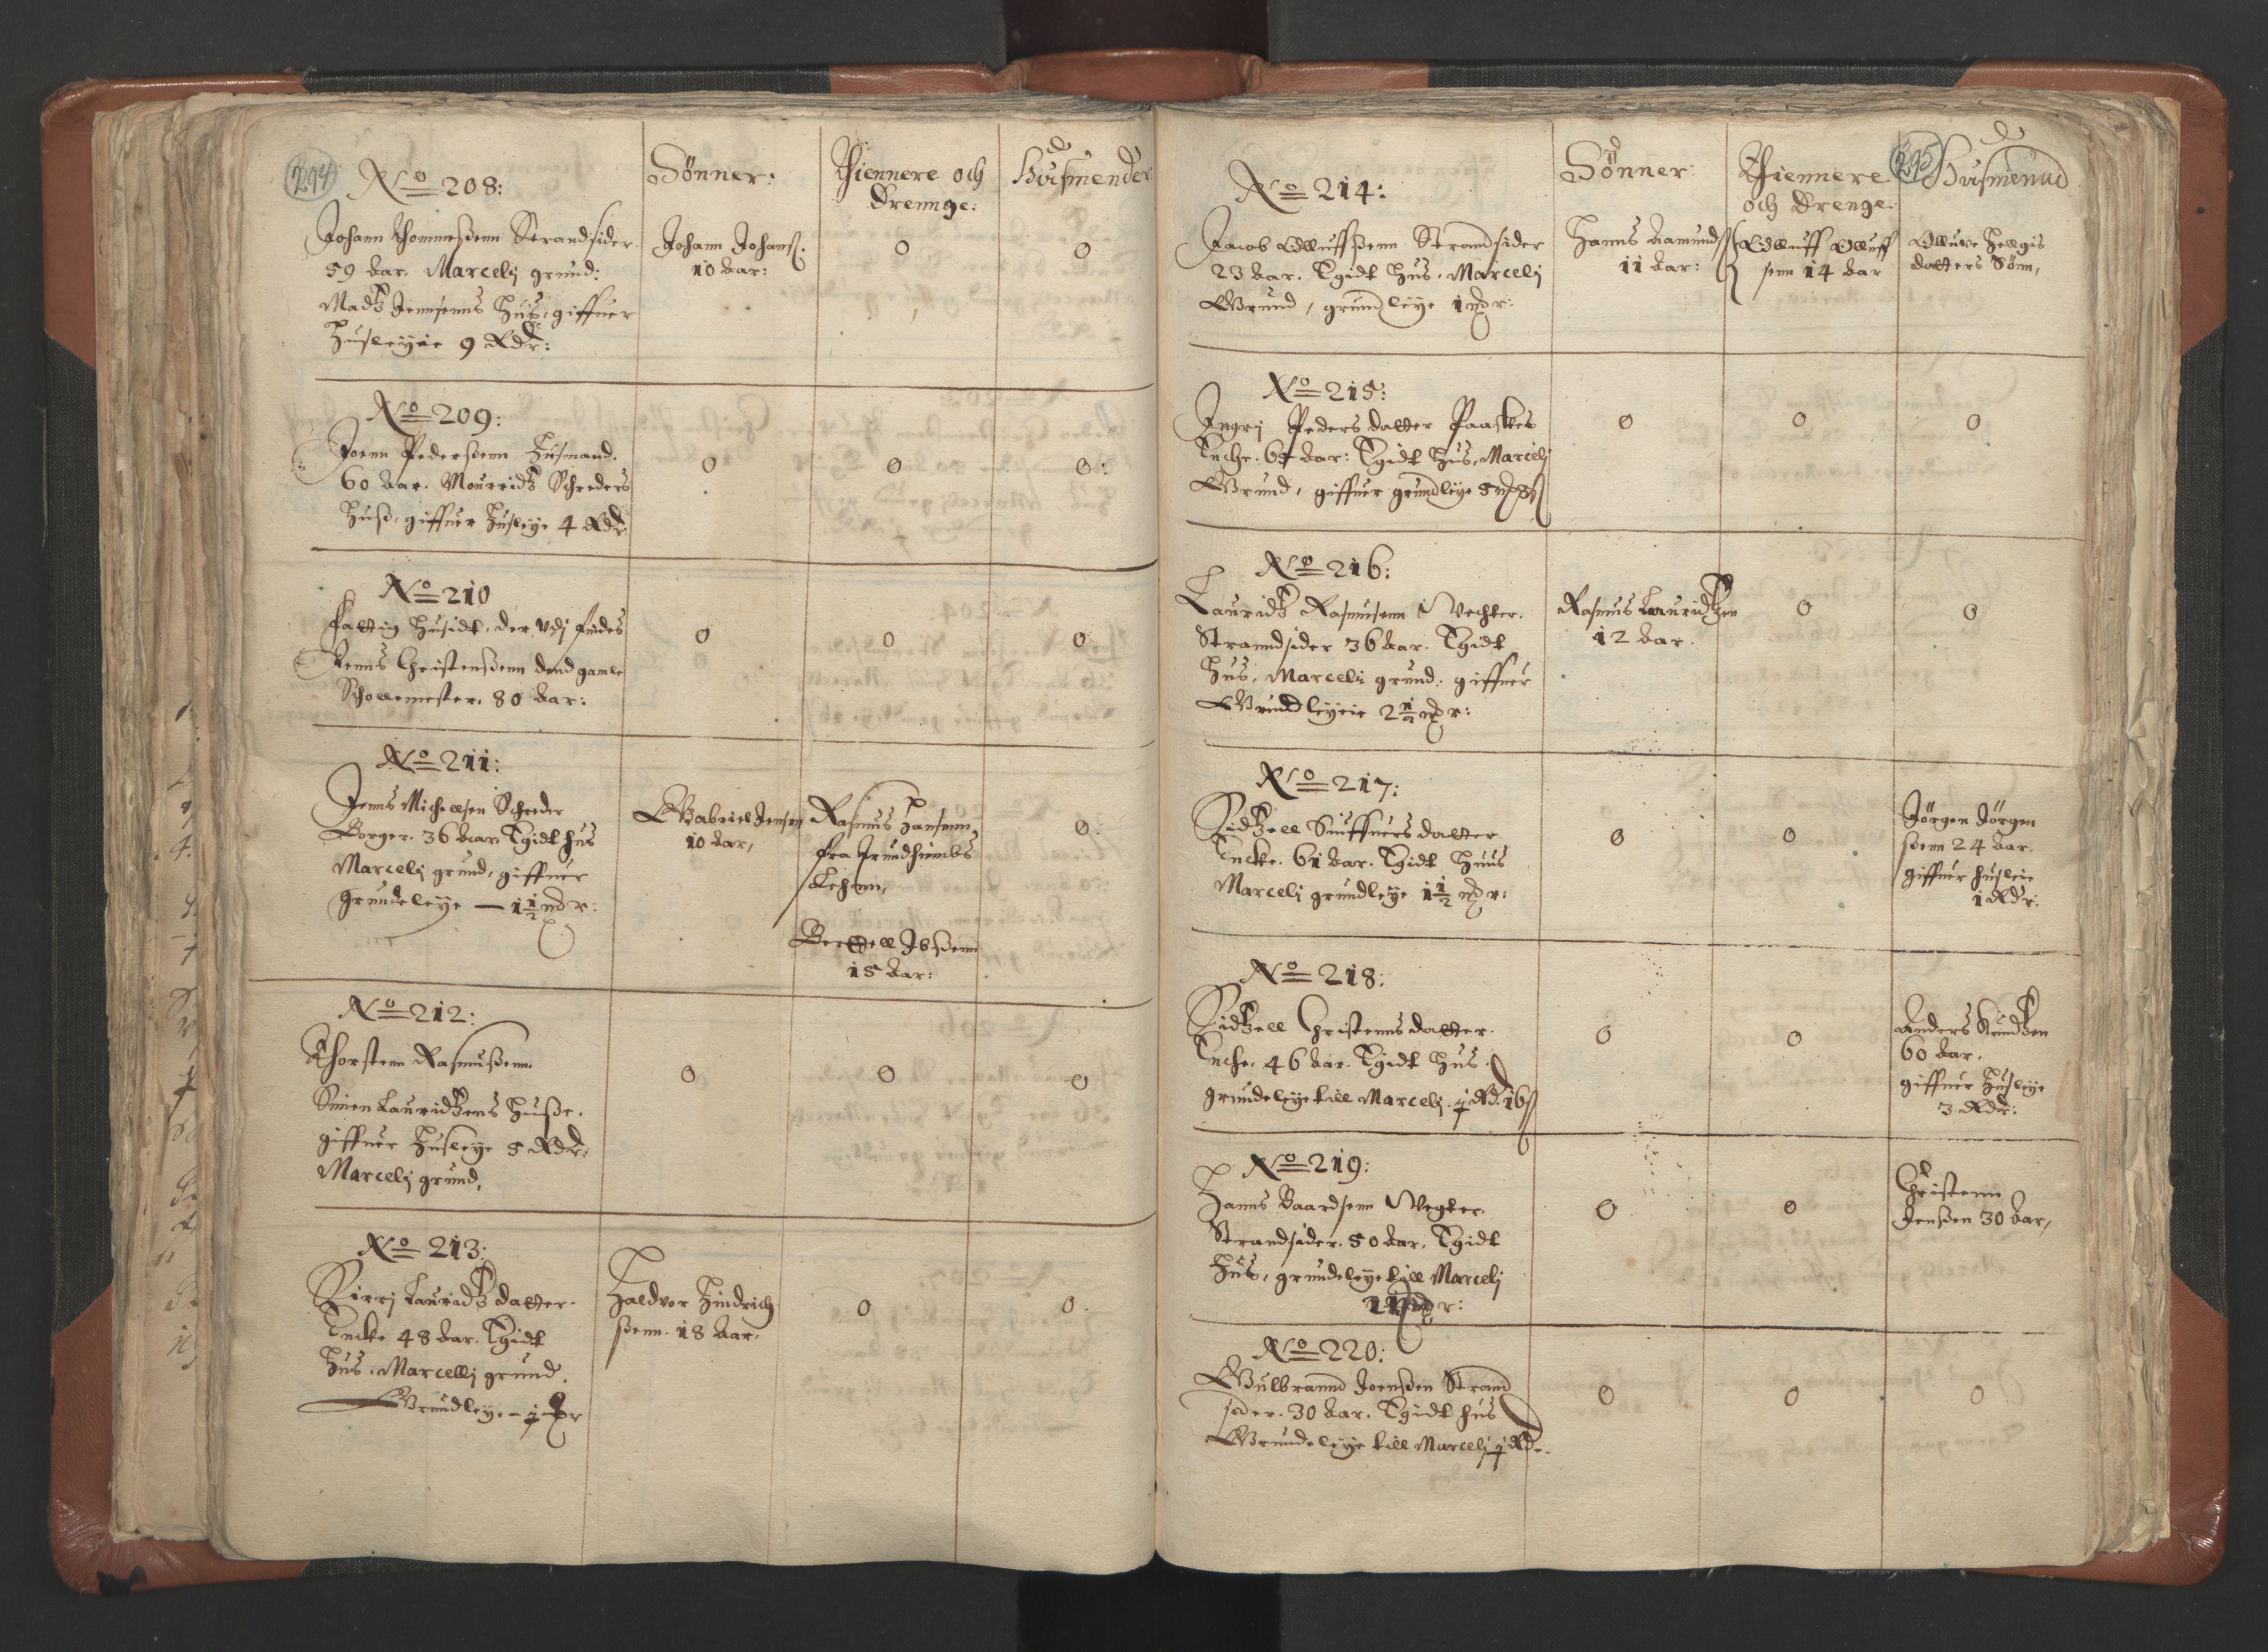 294
No 208:
Sönner:
Thiennere och
Drennge:
Husmender
Johann Thommeßenn Strandsider.
59 Aar. Marcelj grund:
Madtz Jennsenns Hus, giffuer
Husleyie 9 Rdr:
Johann Johans:
10 Aar:
0
0
No 209:
Joenn Pederßenn Husmand.
60 Aar. Mouridtz Schreders
Huß, giffuer Husleye 4 Rdr
0
0
0:
No 210
Fattig Husidt, der Udj findes
Jenns Christenßenn dend gamle
Scholemester. 80 Aar:
0
0
0
No 211:
Jenns Michelsen Schreder
Borger. 36 Aar Egidt hus
Marcelj grund, giffuer
Grundeleye — 1 1/2 r:
Gabriel Jensen
10 Aar,
Rasmus Hansenn,
fra Trundhiembs
Lehnn,
Berttell Ibßenn
15 Aar:
0:
No 212:
Thorstenn Rasmußenn.
Simen Lauridtzens Huße.
giffuer Husleye 5 Rdr:
Marcelj grund,
0
0
0
No 213:
Sirrj Lauridtz datter.
Encke 48 Aar. Egidt
Hus. Marcellj grund.
Grundleye – j r
Haldvor Hindrich
ßenn. 18 Aar,
0
0.
295
No 214:
Sönner:
Thiennere
och Drenge:
Husmennd
Jacob Olluffßenn Strandsider
23 Aar. Egidt Hus. Marcelj
Grund, grundleye 1 r:
Hanns Aamunds
11 Aar:
Olluff Olluff
senn 14 Aar
Olluve Helgis
datters Sönn,
No 215:
Ingrj Peders datter Paaskes
Enche. 64 Aar: Egidt Hus, Marcelj
Grund, giffuer grundleye 5
0
0
0
No 216:
Lauridtz Rasmusenn Vechter.
Stranndsider 36 Aar. Egidt
Hus. Marcelij grund: giffuer
Grundleyie 2 1/2 r:
Rasmus Lauridtzen
12 Aar.
0
0
No 217:
Sidtzell Siuffuers datter
Encke. 61 Aar. Egidt Huus
Marcelj grundleye 1 1/2 r:
0
0
Jörgen Jörgen
ßenn 24 Aar.
giffuer husleie
1 Rdr:
No 218:
Sidtzell Christenns datter.
Enche. 46 Aar. Egidt Hus.
grundeleye till Marcelj. j Rd. 16 ß
0
0
Anders Knudtzen
60 Aar.
giffuer Husleye
3 Rdr:
No 219:
Hanns Baardsenn Vegter.
Strandsider. 50 Aar. Egidt
Hus, grundeleye till Marcelj
r:
0
0
Christenn
Jenßen 30 Aar,
No 220:
Gulbrannd Joenßen Strand
sider. 30 Aar. Egidt hus
Grundeleye till Marcelj j Rdr.
0
0
0